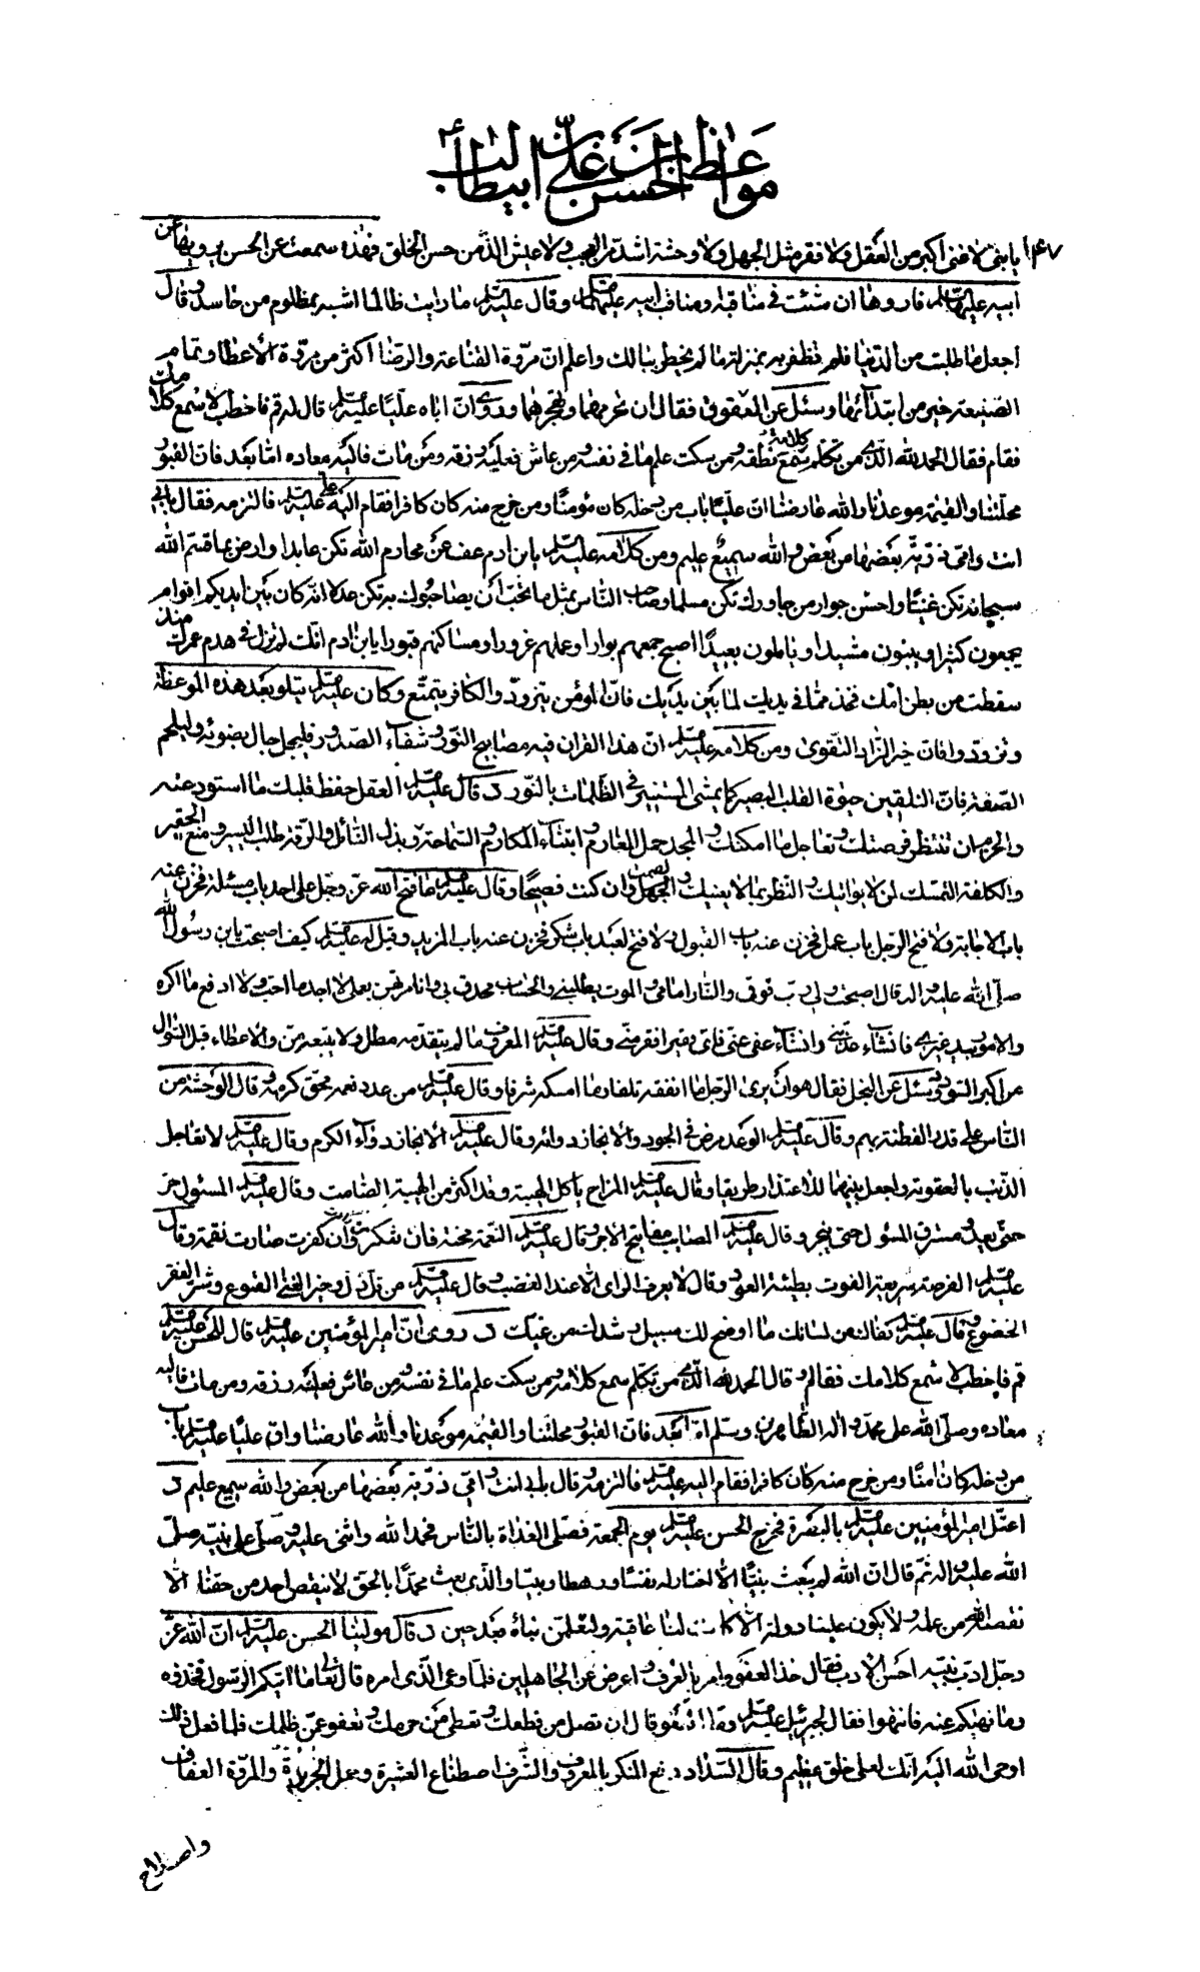 مواعظ الحسن بن علي بن ابيطالب ع
١٤٧ يا بنى لا غنى اكبر من العقل ولا فقر مثل الجهل ولا وحشة اشد من العجب ولا عيش الذ من حسن الخلق فهذه سمعت عن الحسن يرويها عن
ابيه عليهما السلم فاروها ان شئت فى مناقبه او مناقب ابيه عليهما السلم وقال عليه السلم ما رايت ظالما اشبه بمظلوم من حاسد وقال
اجعل ما طلبت من الدنيا فلم تظفر به بمنزلة ما لم يخطر ببالك واعلم ان مروة القناعة والرضا اكثر من مروة الاعطا وتمام
الصنيعة خير من ابتدائها وسئل عن العقوق فقال ان تحرمهما وتهجرهما وروى ان اباه عليا عليه السلم قال له قم فاخطب لاسمع كلامك
فقام فقال الحمد لله الذى من تكلم سمع نطقه ومن سكت علم ما فى نفسه ومن عاش فعليه رزقه ومن مات فاليه معاده اما بعد فان القبور
محلتنا والقيمة موعدنا والله عارضنا ان عليا باب من دخله كان مؤمنا ومن خرج منه كان كافرا فقام اليه على عليه السلم فالتزمه فقال بابى
انت وامى ذرية بعضها من بعض والله سميع عليم ومن كلامه عليه السلم يابن ادم عف عن محارم الله تكن عابدا وارض بما قسم الله
سبحانه تكن غنيا واحسن جوار من جاورك تكن مسلما وصاحب الناس بمثل ما تحب ان يصاحبوك به تكن عدلا انه كان بين ايديكم اقوام
يجمعون كثيرا ويبنون مشيدا وياملون بعيدا اصبح جمعهم بوارا وعملهم غرورا ومساكنهم قبورا يابن ادم انك لم تزل فى هدم عمرك منذ
سقطت من بطن امك فخذ مما فى يديك لما بين يديك فان المؤمن يتزود والكافر يتمتع وكان عليه السلم يتلو بعد هذه الموعظة
وتزودوا فان خير الزاد التقوى ومن كلامه عليه السلم ان هذا القران فيه مصابيح النور وشفاء الصدور فليجل جال بضوئه وليلجم
الصفة فان التلقين حيوة القلب البصير كما يمشى المستنير فى الظلمات بالنور د قال عليه السلم العقل حفظ قلبك ما استودعته
والحزم ان تنتظر فرصتك وتعاجل ما امكنك والمجد حمل المغارم وابتناء المكارم والسماحة وبذل النائل والرقة طلب اليسير ومنع الحقير
والكلفة التمسك لمن لا يواتيك والنظر بما لا يعنيك والجهل وان كنت فصيحا وقال عليه السلم ما فتح الله عز وجل على احد باب مسئلة فخزن عنه
باب الاجابة ولا فتح الرجل باب عمل فخزن عنه باب القبول ولا فتح لعبد باب شكر فخزن عنه باب المزيد وقيل له عليه السلم كيف اصبحت يابن رسول الله
صلى الله عليه واله قال اصبحت ولى رب فوقى والنار امامى والموت يطلبنى والحساب محدق بى وانا مرتهن بعملى لا اجد ما احب ولا ادفع ما اكره
والامور بيد غيرى فان شاء عذبنى وان شاء عفى عنى فاى فقير افقر منى وقال عليه السلم المعروف ما لم يتقدمه مطل ولا يتبعه من والاعطاء قبل السؤال
من اكبر السودد وسئل عن البخل فقال هو ان يرى الرجل ما انفقه تلفا وما امسكه شرفا وقال عليه السلم من عدد نعمه محق كرمه وقال الوحشة من
الناس على قدر الفطنة بهم وقال عليه السلم الوعد مرض فى الجود والانجاز دوائه وقال عليه السلم الانجاز دواء الكرم وقال عليه السلم لا تعاجل
الذنب بالعقوبة واجعل بينهما للاعتذار طريقا وقال عليه السلم المزاح ياكل الهيبة وقد اكثر من الهيبة الصامت وقال عليه السلم المسئول حر
حتى يعد ومسترق المسئول حتى ينجز وقال عليه السلم المصائب مفاتيح الاجر وقال عليه السلم النعمة محنة فان شكرت كانت وان كفرت صارت نقمة وقال
عليه السلم الفرصة سريعة الفوت بطيئة العود وقال لا يعرف الراى الا عند الغضب وقال عليه السلم من قل ذل وخير الغنى القنوع وشر الفقر
الخضوع وقال عليه السلم كفاك من لسانك ما اوضح لك سبيل رشدك من غيك د روى ان امير المؤمنين عليه السلم قال للحسن عليه السلم
قم فاخطب لاسمع كلامك فقام وقال الحمد لله الذى من تكلم سمع كلامه ومن سكت علم ما فى نفسه ومن عاش فعليه رزقه ومن مات فاليه
معاده وصلى الله على محمد واله الطاهرين وسلم اما بعد فان القبور محلتنا والقيمة موعدنا والله عارضنا وان عليا عليه السلم باب
من دخله كان امنا ومن خرج منه كان كافرا فقام اليه عليه السلم فالتزمه وقال بابى انت وامى ذرية بعضها من بعض والله سميع عليم د
اعتل امير المؤمنين عليه السلم بالبصرة فخرج الحسن عليه السلم يوم الجمعة فصلى الغداة بالناس فحمد الله واثنى عليه وصلى على نبيه صلى
الله عليه واله ثم قال ان الله لم يبعث نبيا الا اختار له نفسا ورهطا وبيتا والذى بعث محمدا بالحق لا ينقص احد من حقنا الا
نقصه الله من عمله ولا يكون علينا دولة الا كانت لنا عاقبة ولتعلمن نباه بعد حين د قال مولينا الحسن عليه السلم ان الله عز
وجل ادب نبيه احسن الادب فقال خذ العفو وامر بالعرف واعرض عن الجاهلين فلما وعى الذى امره قال تعالى ما اتيكم الرسول فخذوه
وما نهيكم عنه فانتهوا فقال لجبرئيل عليه السلم وما العفو قال ان تصل من قطعك وتعطى من حرمك وتعفو عمن ظلمك فلما فعل ذلك
اوحى الله اليه انك لعلى خلق عظيم وقال السداد دفع المنكر بالمعروف والشرف اصطناع العشيرة وحمل الجريرة والمروة العفاف
واصلاح